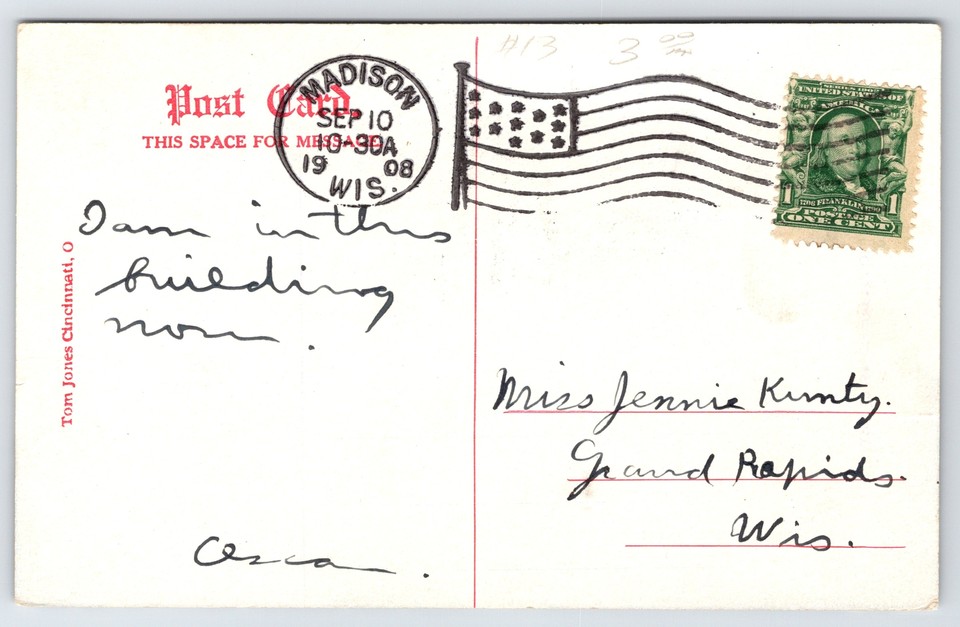 #13
3 00
Post Card.
THIS SPACE FOR MESSAGE
MADISON
SEP 10
10-30A
1908
WIS.
SERIES 1902
UNITED STATES OF
AMERICA
1706 FRANKLIN 1790
1 1
POSTAGE
ONE CENT
I am in this
building
now.
Tom Jones Cincinnati, O
Miss Jennie
Grand Rapids.
Wis.